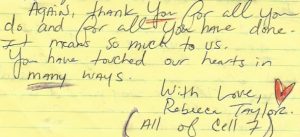 Again, thank you for all you
do and for all you have done.
It means so much to us.
You have touched our hearts in
many ways.
With Love,
Rebeca Taylor
(All of Cell 7)